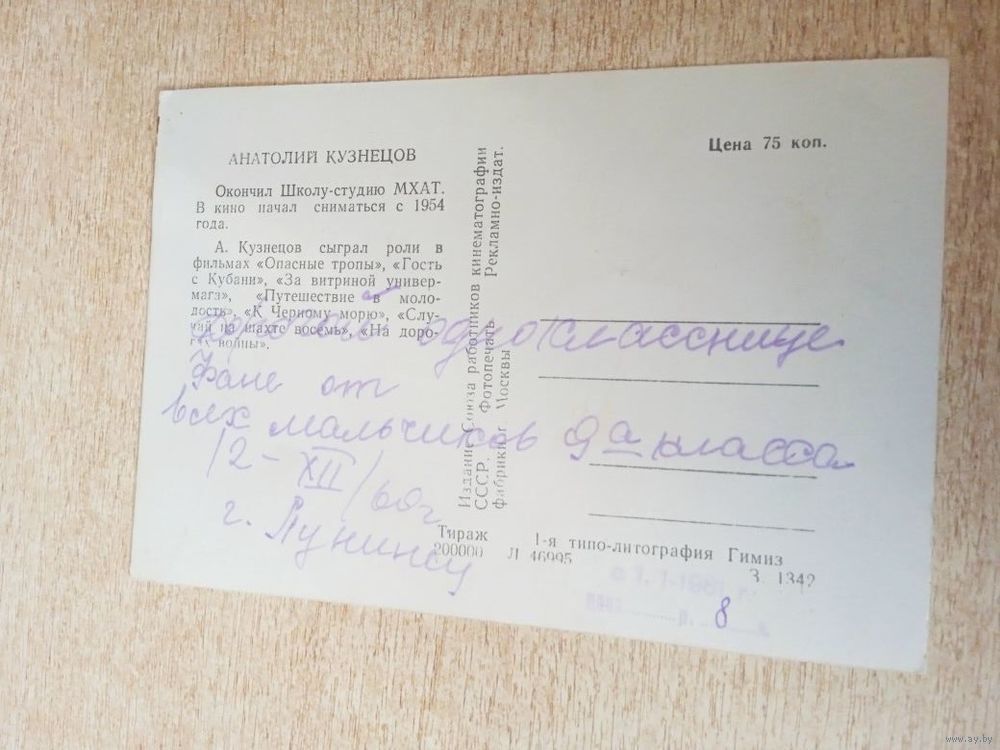 АНАТОЛИЙ КУЗНЕЦОВ
Окончил Школу-студию МХАТ.
В кино начал сниматься с 1954
года.
А. Кузнецов сыграл роли в
фильмах «Опасные тропы», «Гость
с Кубани», «За витриной универ-
мага», «Путешествие в моло-
дость», «К Черному морю», «Слу-
чай на шахте восемь», «На доро-
гах войны».
Издание Союза работников кинематографии
СССР. Фотопечать Рекламно-издат.
фабрики г. Москвы
Цена 75 коп.
дорогой однокласснице
Фане от
всех мальчиков 9а класса
12-XII/60г
г. Лунинец
Тираж
200000 Л 46995
1-я типо-литография Гимиз
З. 1342
с 1.1-1961 г.
р. 8 к.
www.ay.by